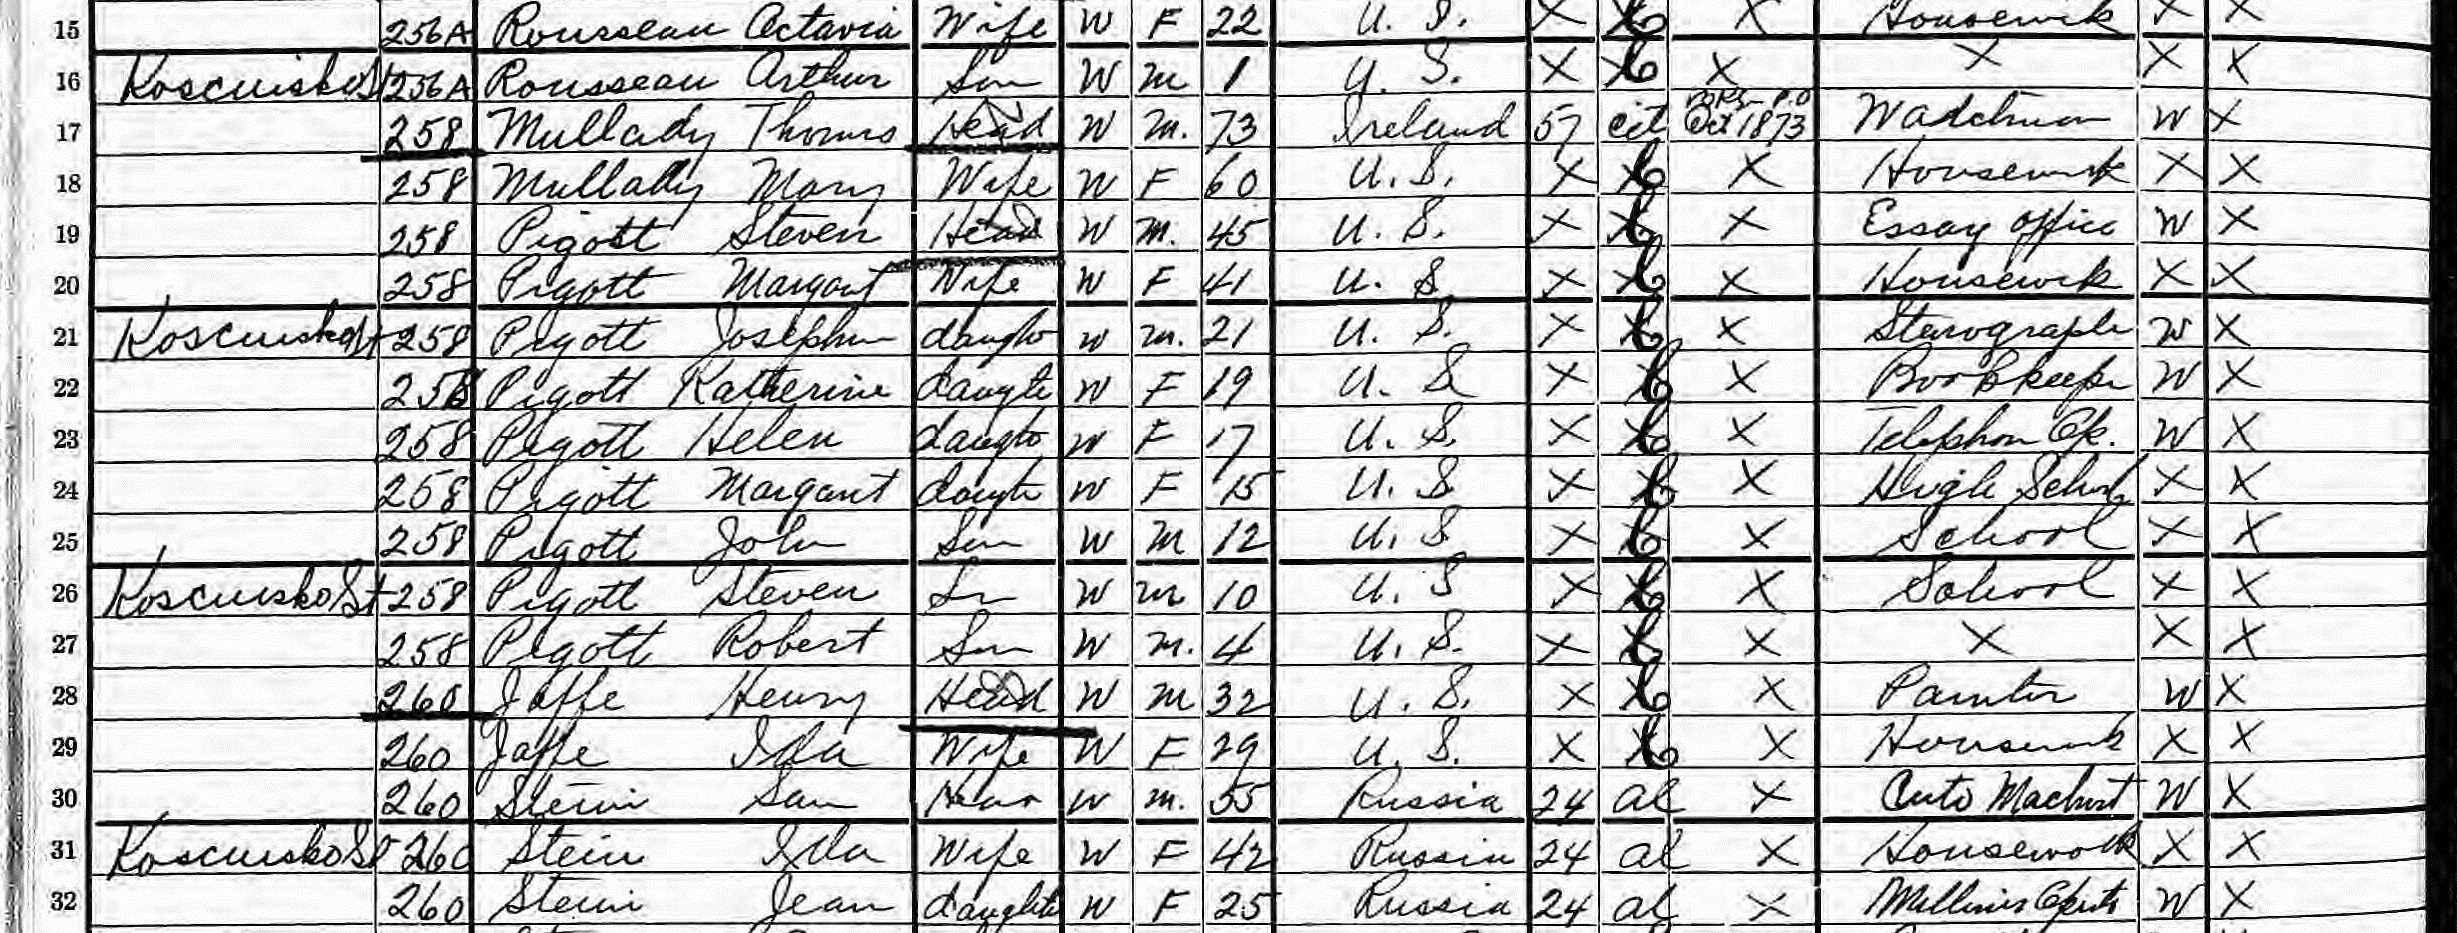 15 256A Rousseau Octavia Wife W F 22 U. S. X C X Housewk X X
16 Koscuisko St 256A Rousseau Arthur Son W M 1 U. S. X C X X X X
17 258 Mullady Thomas Head W M. 73 Ireland 57 cit Oct 1873 Watchman W X
18 258 Mullady Mary Wife W F 60 U. S. X C X Housewrk X X
19 258 Pigott Steven Head W M. 45 U. S. X C X Essay Office W X
20 258 Pigott Margart Wife W F 41 U. S X C X Housewk X X
21 Koscuisko St 258 Pigott Josephin daughtr W M. 21 U. S. X C X Stenographr W X
22 258 Pigott Katherine daughte W F 19 U. S X C X Bookkeepr W X
23 258 Pigott Helen daughtr W F 17 U. S. X C X Telephon Op. W X
24 258 Pigott Margart daughtr W F 15 U. S X C X High School X X
25 258 Pigott John Son W M 12 U. S X C X School X X
26 Koscuisko St 258 Pigott Steven Sn W M 10 U. S X C X School X X
27 258 Pigott Robert Son W M. 4 U. S. X C X X X X
28 260 Jaffe Henry Head W M 32 U. S. X C X Painter W X
29 260 Jaffe Ida Wife W F 29 U. S. X C X Housewrk X X
30 260 Stein Sam Head W M. 55 Russia 24 al X Auto Machnst W X
31 Koscuisko St 260 Stein Ida Wife W F 42 Russia 24 al X Housework X X
32 260 Stein Jean daughter W F 25 Russia 24 al X W X